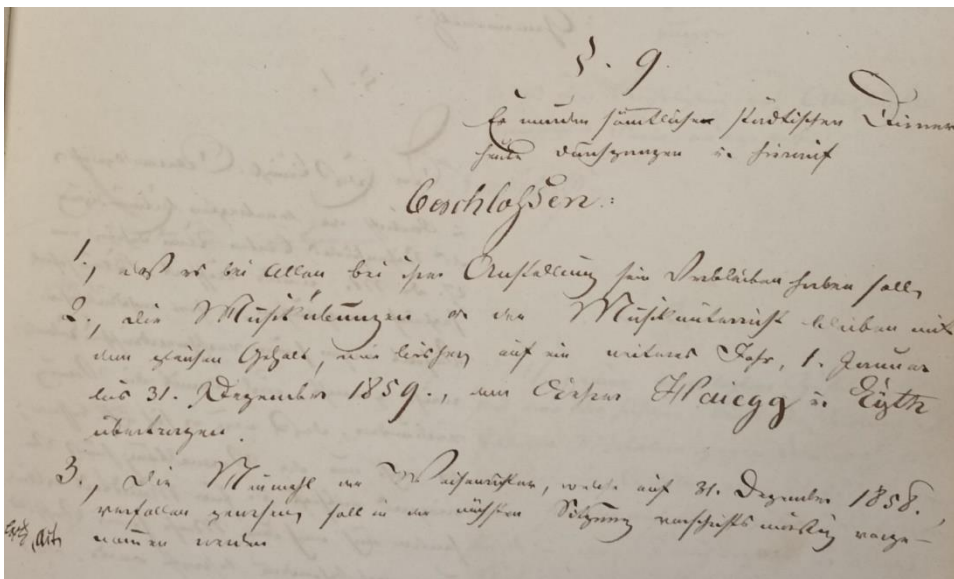 §. 9
Es wurden sämtliche städtischen Diener
heute durchgangen u. hierauf
Beschlossen:
1., daß es bei Allen bei ihrer Anstellung sein Verbleiben haben soll,
2., die Musikübungen & der Musikunterricht bleiben mit
dem gleichen Gehalt, wie bisher, auf ein weiteres Jahr, 1. Januar
bis 31. Dezember 1859., den Haiegg u. Eyth
übertragen.
3., Die der Waisenrichter, welche auf 31. Dezember 1858.,
verfallen gewesen, soll in der nächsten Sitzung vorschriftsmäßig vorge-
nommen werden